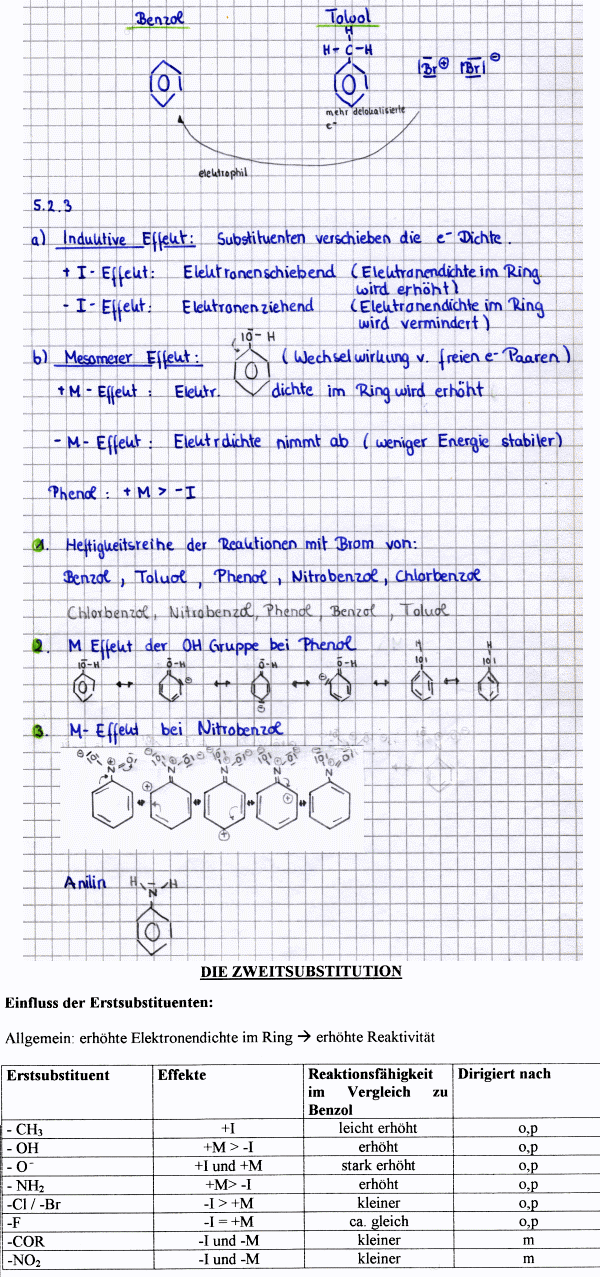 Benzol Toluol
H
H-C-H
|Br⊕ |Br|⊖
mehr delokalisierte
e⁻
elektrophil
5.2.3
a) Induktive Effekt: Substituenten verschieben die e⁻ Dichte.
+ I - Effekt: Elektronenschiebend (Elektronendichte im Ring
wird erhöht)
- I - Effekt: Elektronenziehend (Elektronendichte im Ring
wird vermindert)
|O-H
b) Mesomerer Effekt: (Wechselwirkung v. freien e⁻ Paaren)
+M - Effekt: Elektr. dichte im Ring wird erhöht
-M- Effekt: Elektrdichte nimmt ab (weniger Energie stabiler)
Phenol: +M > -I
1. Heftigkeitsreihe der Reaktionen mit Brom von:
Benzol, Toluol, Phenol, Nitrobenzol, Chlorbenzol
Chlorbenzol, Nitrobenzol, Phenol, Benzol, Toluol
2. M Effekt der OH Gruppe bei Phenol
3. M- Effekt bei Nitrobenzol
Anilin H N H
DIE ZWEITSUBSTITUTION
Einfluss der Erstsubstituenten:
Allgemein: erhöhte Elektronendichte im Ring → erhöhte Reaktivität
Erstsubstituent Effekte Reaktionsfähigkeit Dirigiert nach
im Vergleich zu
Benzol
- CH₃ +I leicht erhöht o,p
- OH +M > -I erhöht o,p
- O⁻ +I und +M stark erhöht o,p
- NH₂ +M> -I erhöht o,p
-Cl / -Br -I > +M kleiner o,p
-F -I = +M ca. gleich o,p
-COR -I und -M kleiner m
-NO₂ -I und -M kleiner m